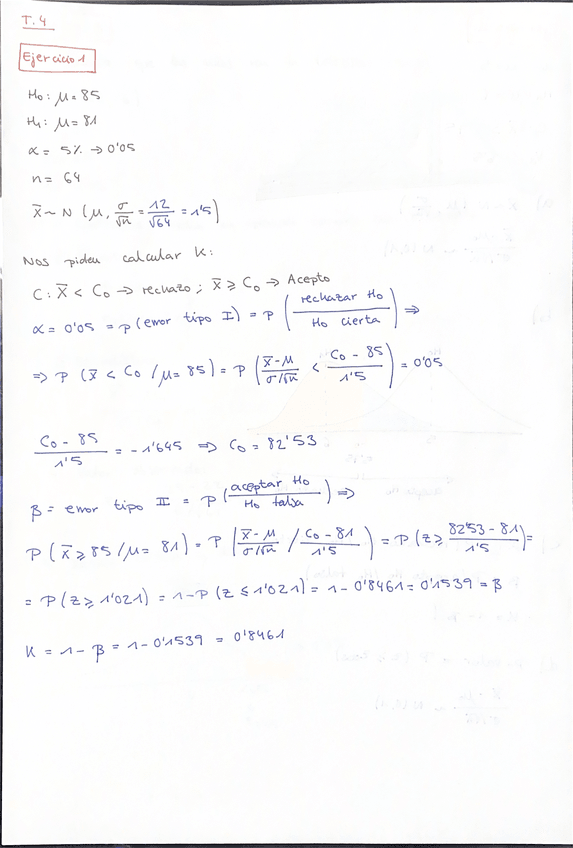 T.4
Ejercicio 1
H₀: μ = 85
H₁: μ = 81
α = 5% → 0'05
n = 64
x̄ ~ N (μ, σ/√n = 12/√64 = 1'5)
Nos piden calcular K:
C: x̄ < C₀ → rechazo ; x̄ ⩾ C₀ → Acepto
α = 0'05 = P (error tipo I) = P (rechazar H₀ / H₀ cierta) ⇒
⇒ P (x̄ < C₀ / μ = 85) = P (x̄-μ / σ/√n < C₀ - 85 / 1'5) = 0'05
C₀ - 85 / 1'5 = -1'645 ⇒ C₀ = 82'53
β = error tipo II = P (aceptar H₀ / H₀ falsa) ⇒
P (x̄ ⩾ 85 / μ = 81) = P (x̄-μ / σ/√n / C₀ - 81 / 1'5) = P (z ⩾ 82'53 - 81 / 1'5) =
= P (z ⩾ 1'021) = 1 - P (z ⩽ 1'021) = 1 - 0'8461 = 0'1539 = β
K = 1 - β = 1 - 0'1539 = 0'8461